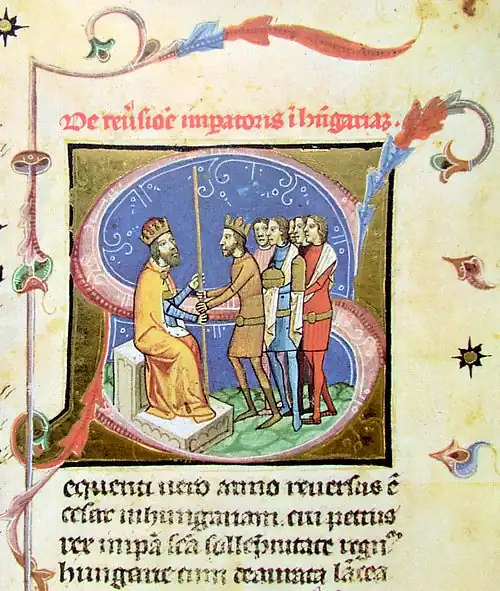 De reu̅sioe̅ imp̲atoris i̅ hu̅gariaʒ.
Sequenti uero anno reuersus e̅
cesar in hungariam. cui petrus
rex in ipa̅ sca̅ solle̅pnitate regnu̅
hungarie cum deaurata la̅cea